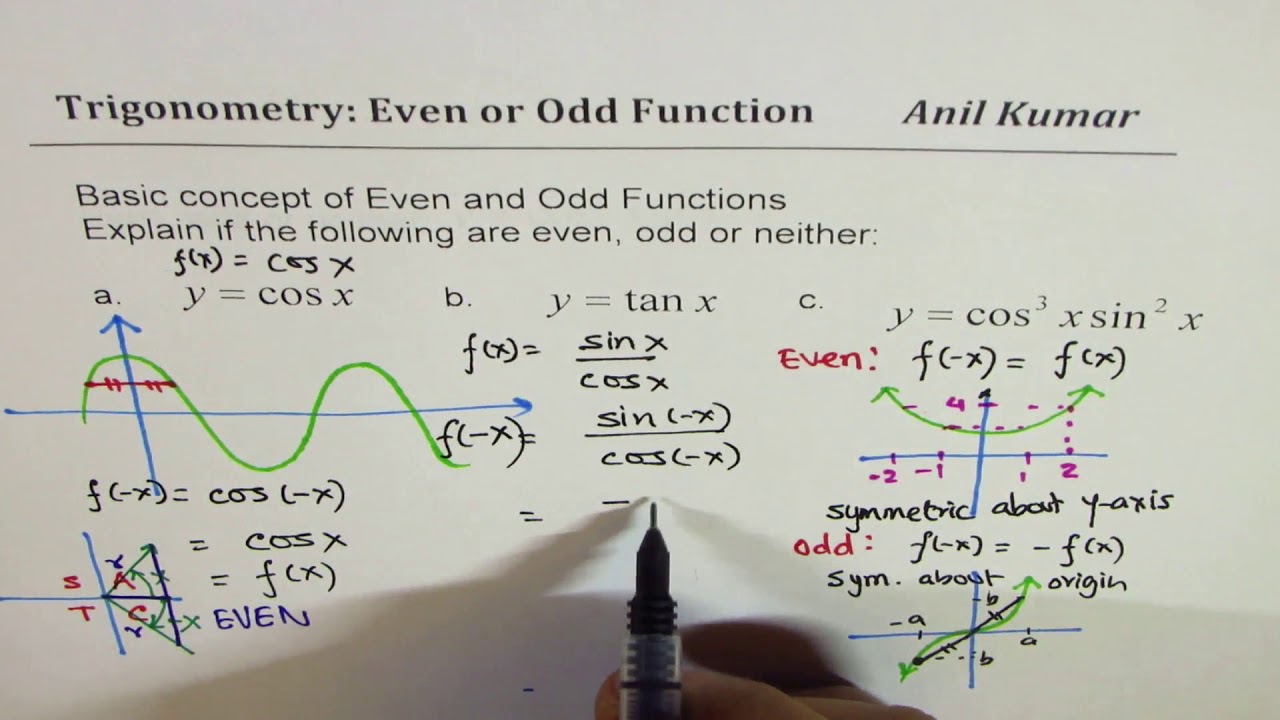 Trigonometry: Even or Odd Function Anil Kumar
Basic concept of Even and Odd Functions
Explain if the following are even, odd or neither:
f(x) = cos x
a. y = cos x
f(-x) = cos(-x)
= cos x
= f(x)
EVEN
S A
T C
r
x
-x
r
b. y = tan x
f(x) = sin x / cos x
f(-x) = sin(-x) / cos(-x)
= -
c. y = cos³ x sin² x
Even: f(-x) = f(x)
4
-2 -1 1 2
symmetric about y-axis
odd: f(-x) = - f(x)
sym. about origin
b
-a a
-b